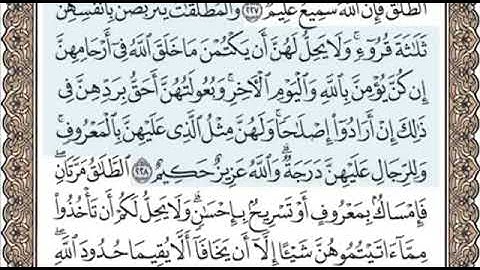 ٱلطَّلَٰقَ فَإِنَّ ٱللَّهَ سَمِيعٌ عَلِيمٌ ٢٢٧ وَٱلْمُطَلَّقَٰتُ يَتَرَبَّصْنَ بِأَنفُسِهِنَّ
ثَلَٰثَةَ قُرُوٓءٍ ۚ وَلَا يَحِلُّ لَهُنَّ أَن يَكْتُمْنَ مَا خَلَقَ ٱللَّهُ فِىٓ أَرْحَامِهِنَّ
إِن كُنَّ يُؤْمِنَّ بِٱللَّهِ وَٱلْيَوْمِ ٱلْـَٔاخِرِ ۚ وَبُعُولَتُهُنَّ أَحَقُّ بِرَدِّهِنَّ فِى
ذَٰلِكَ إِنْ أَرَادُوٓا۟ إِصْلَٰحًا ۚ وَلَهُنَّ مِثْلُ ٱلَّذِى عَلَيْهِنَّ بِٱلْمَعْرُوفِ ۚ
وَلِلرِّجَالِ عَلَيْهِنَّ دَرَجَةٌ ۗ وَٱللَّهُ عَزِيزٌ حَكِيمٌ ٢٢٨ ٱلطَّلَٰقُ مَرَّتَانِ ۖ
فَإِمْسَاكٌۢ بِمَعْرُوفٍ أَوْ تَسْرِيحٌۢ بِإِحْسَٰنٍ ۗ وَلَا يَحِلُّ لَكُمْ أَن تَأْخُذُوا۟
مِمَّآ ءَاتَيْتُمُوهُنَّ شَيْـًٔا إِلَّآ أَن يَخَافَآ أَلَّا يُقِيمَا حُدُودَ ٱللَّهِ ۖ